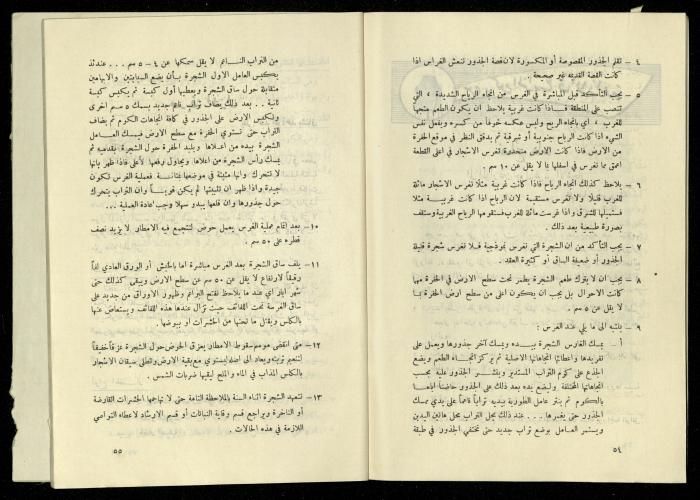 ٤ – تقلم الجذور المقصوصة أو المكسورة لان قصة الجذور تنعش الغراس اذا
كانت القصة القديمة غير صحيحة .
٥ – يجب التأكد قبل المباشرة في الغرس من اتجاه الرياح الشديدة ، التي
تنصب على المنطقة فاذا كانت غربية يلاحظ ان يكون الطعم متجهاً
للغرب ، أي باتجاه الريح وليس عكسه خوفاً من كسره ويفعل نفس
الشيء اذا كانت الرياح جنوبية أو شرقية ثم يدقق النظر في موقع الحفرة
من الارض فاذا كانت الارض منحدرة تغرس الاشجار في اعلى القطعة
اعمق مما تغرس في اسفلها بما لا يقل عن ١٠ سم .
٦ – يلاحظ كذلك اتجاه الرياح فاذا كانت غربية مثلا تغرس الاشجار مائلة
للغرب قليلاً ولا تغرس مستقيمة لان الرياح اذا كانت غربية مثلا
فستميلها للشرق واذا غرست مائلة للغرب فستقومها الرياح الغربية وستقف
بصورة طبيعية بعد ذلك .
٧ – يجب التأكد من ان الشجرة التي تغرس نموذجية فلا تغرس شجرة قليلة
الجذور أو ضعيفة الساق أو كثيرة العقد .
٨ – يجب ان لا يترك طعم الشجرة يطمر تحت سطح الارض في الحفرة مهما
كانت الاحوال بل يجب ان يكون اعلى من سطح ارض الحفرة بما
لا يقل عن ٥ سم .
٩ – ينتبه الى ما يلي عند الغرس :
أ – يمسك الغارس الشجرة بيده ويمسك آخر جذورها ويعمل على
تفريدها واعطائها اتجاهاتها الاصلية ثم يركز اتجاه الطعم ويضع
الجذع على كوم التراب المستدير وينشر الجذور عليه بحسب
اتجاهاتها المختلفة ويضع يده بعد ذلك على الجذور حاضناً اياها
بالكوم ثم ينثر عامل الطورية بيديه تراباً ناعماً على يدي ممسك
الجذور حتى يغمرها . . . عند ذلك يحل التراب محل هاتين اليدين
ويستمر العامل بوضع تراب جديد حتى تختفي الجذور في طبقة
٥٤
من التراب الناعم لا يقل سمكها عن ٤ – ٥ سم . . . عندئذ
يكبس العامل الاول الشجرة بأن يضع السبابتين والابهامين
متقابلة حول ساق الشجرة ويعطيها أول كبسة ثم يكبس كبسة
ثانية . . بعد ذلك يضاف تراب ناعم جديد بسمك ٥ سم اخرى
وتكبس الارض على الجذور في كافة اتجاهات الكوم ثم يضاف
التراب حتى تستوي الحفرة مع سطح الارض فيمسك العامل
الشجرة بيده من اعلاها ويلبد الحفرة حول الشجرة بقدميه ثم
يمسك رأس الشجرة من اعلاها ويحاول رفعها لأعلى فاذا ظهر بانها
لا تتحرك وانها مثبتة في موضعها بمتانة فعملية الغرس تكون
جيدة واذا ظهر ان تثبيتها لم يكن قوياً وان التراب يتحرك
حول جذورها وان قلعها يبدو سهلا وجب اعادة العملية ...
١٠ – بعد اتمام عملية الغرس يعمل حوض لتتجمع فيه الامطار لا يزيد نصف
قطره على ٥٠ سم .
١١ – يلف ساق الشجرة بعد الغرس مباشرة اما بالخيش أو الورق العادي لفاً
رقيقاً لارتفاع لا يقل عن ٥٠ سم عن سطح الارض ويبقى كذلك حتى
شهر ايار أي عند ما يلاحظ تفتح البراعم وظهور الاوراق من جديد على
ساق الغرسة تحت اللفائف حيث تزال عندها هذه اللفائف ويستعاض عنها
بالكلس ويقتل ما تحتها من الحشرات أو بيوضها .
١٢ – متى انقضى موسم سقوط الامطار يعزق الحوض حول الشجرة عزقاً خفيفاً
لتنعيم تربته ويعاد الى اصله ليستوي مع بقية الارض وتطلى سيقان الاشجار
بالكلس المذاب في الماء والملح ليقيها ضربات الشمس .
١٣ – تتعهد الشجرة اثناء السنة بالملاحظة التامة حتى لا تهاجمها الحشرات القارضة
أو الناخرة ويراجع قسم وقاية النباتات أو قسم الارشاد لاعطاء التواصي
اللازمة في هذه الحالات .
٥٥